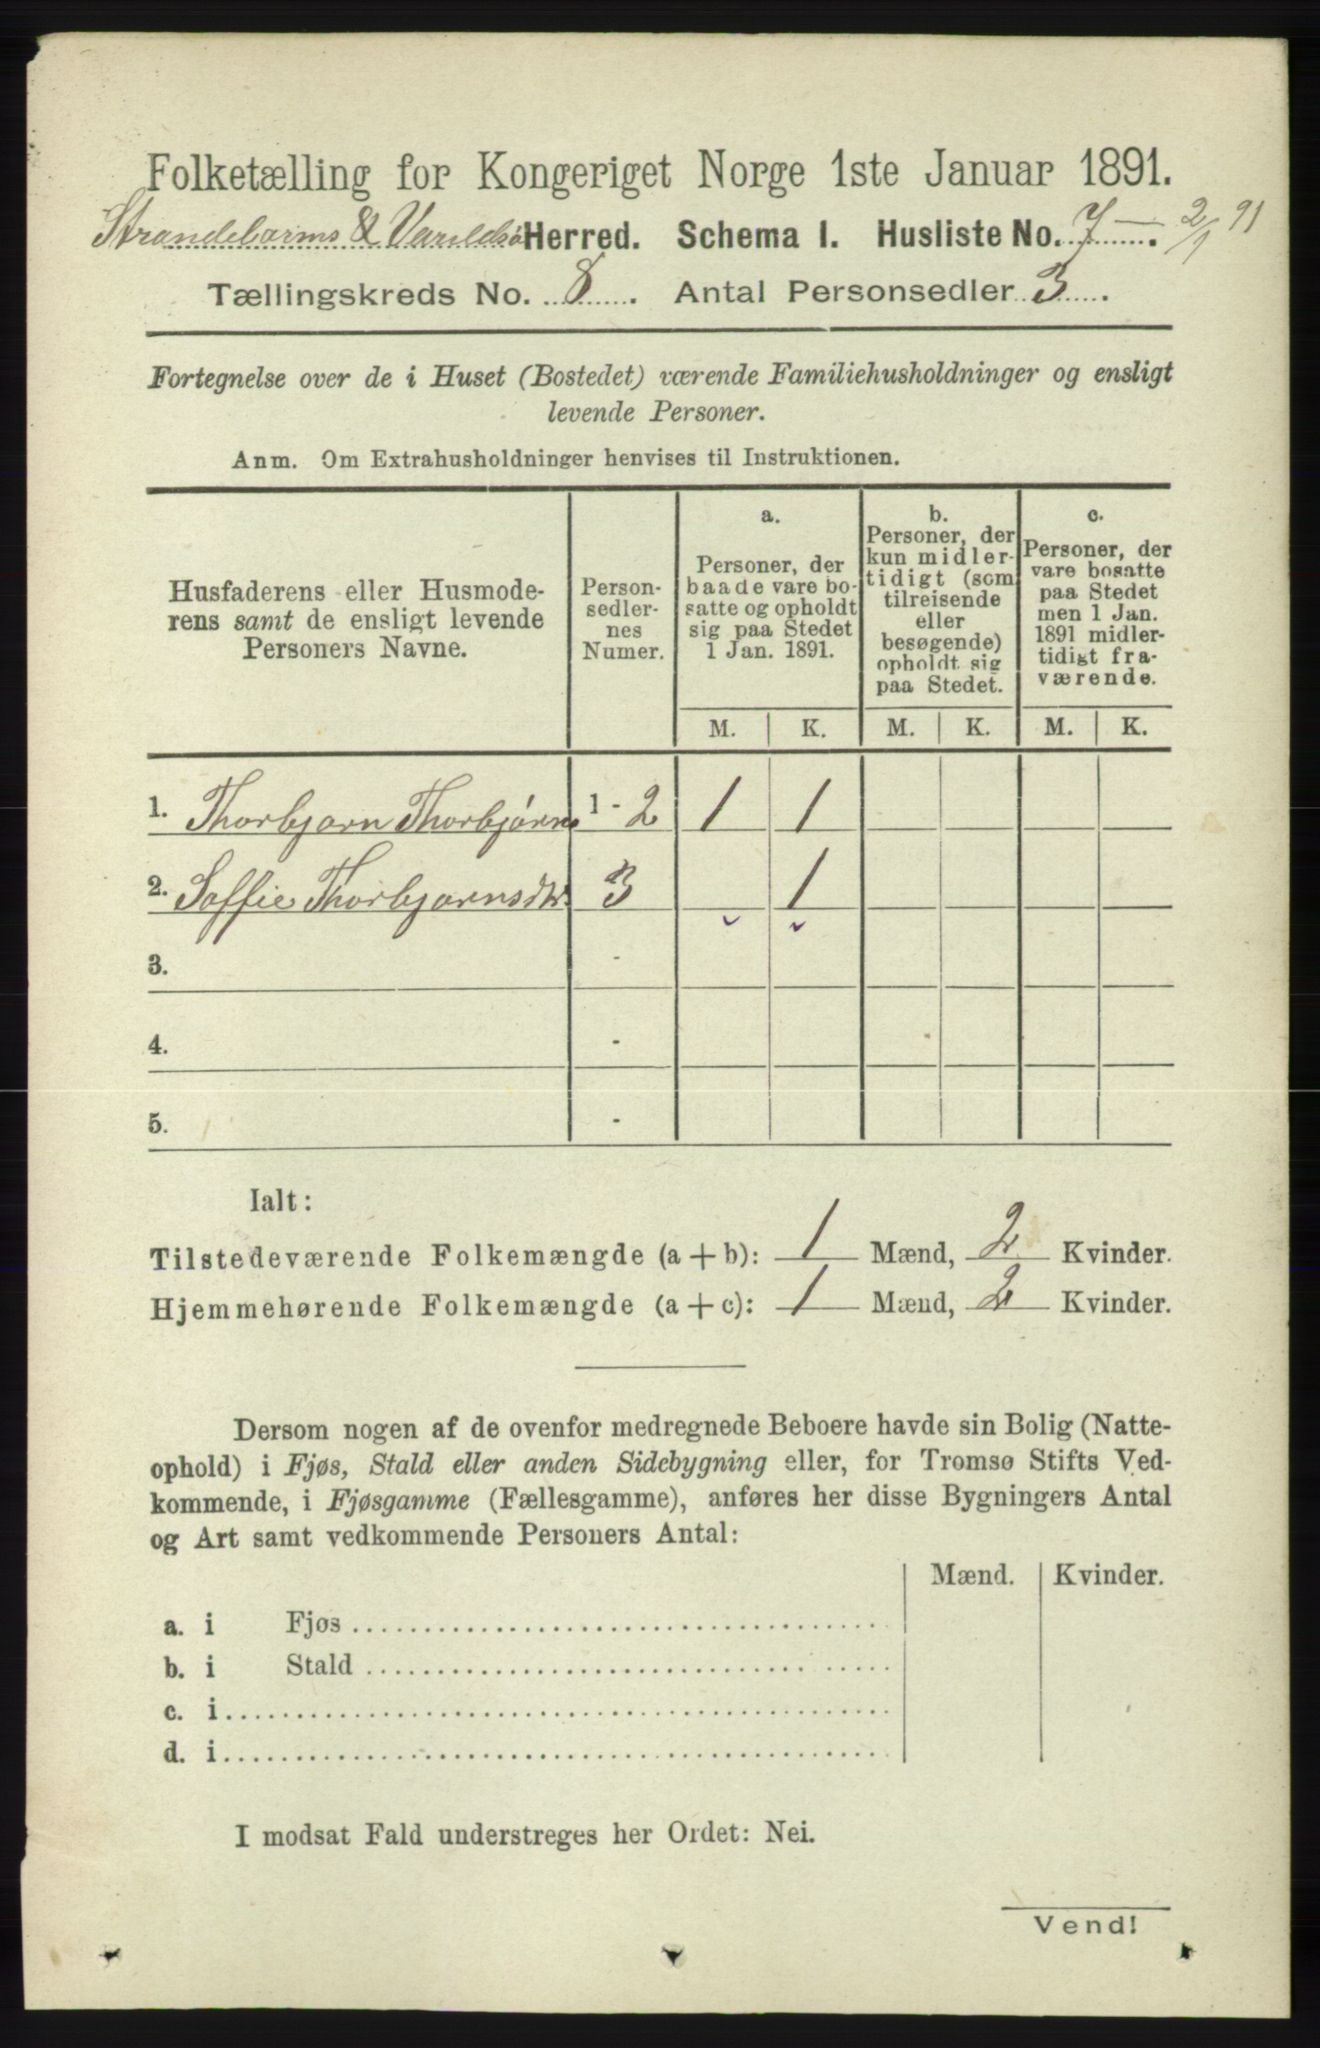 Folketælling for Kongeriget Norge 1ste Januar 1891.
Strandebarms & Varaldsø Herred. Schema I. Husliste No. 7 — . 2/1 91
Tællingskreds No. 8 . Antal Personsedler 3 .
Fortegnelse over de i Huset (Bostedet) værende Familiehusholdninger og ensligt
levende Personer.
Anm. Om Extrahusholdninger henvises til Instruktionen.
Husfaderens eller Husmode-
rens samt de ensligt levende
Personers Navne.
Person-
sedler-
nes
Numer.
a.
Personer, der
baade vare bo-
satte og opholdt
sig paa Stedet
1 Jan. 1891.
b.
Personer, der
kun midler-
tidigt (som
tilreisende
eller
besøgende)
opholdt sig
paa Stedet.
c.
Personer, der
vare bosatte
paa Stedet
men 1 Jan.
1891 midler-
tidigt fra-
værende.
M. K. M. K. M. K.
1. Thorbjørn Thorbjørns 1 - 2 1 1
2. Soffie Thorbjørnsdtr. 3 1
3. -
4. -
5. -
Ialt:
Tilstedeværende Folkemængde (a + b): 1 Mænd, 2 Kvinder.
Hjemmehørende Folkemængde (a + c): 1 Mænd, 2 Kvinder.
Dersom nogen af de ovenfor medregnede Beboere havde sin Bolig (Natte-
ophold) i Fjøs, Stald eller anden Sidebygning eller, for Tromsø Stifts Ved-
kommende, i Fjøsgamme (Fællesgamme), anføres her disse Bygningers Antal
og Art samt vedkommende Personers Antal:
Mænd. Kvinder.
a. i Fjøs
b. i Stald
c. i
d. i
I modsat Fald understreges her Ordet: Nei.
Vend!